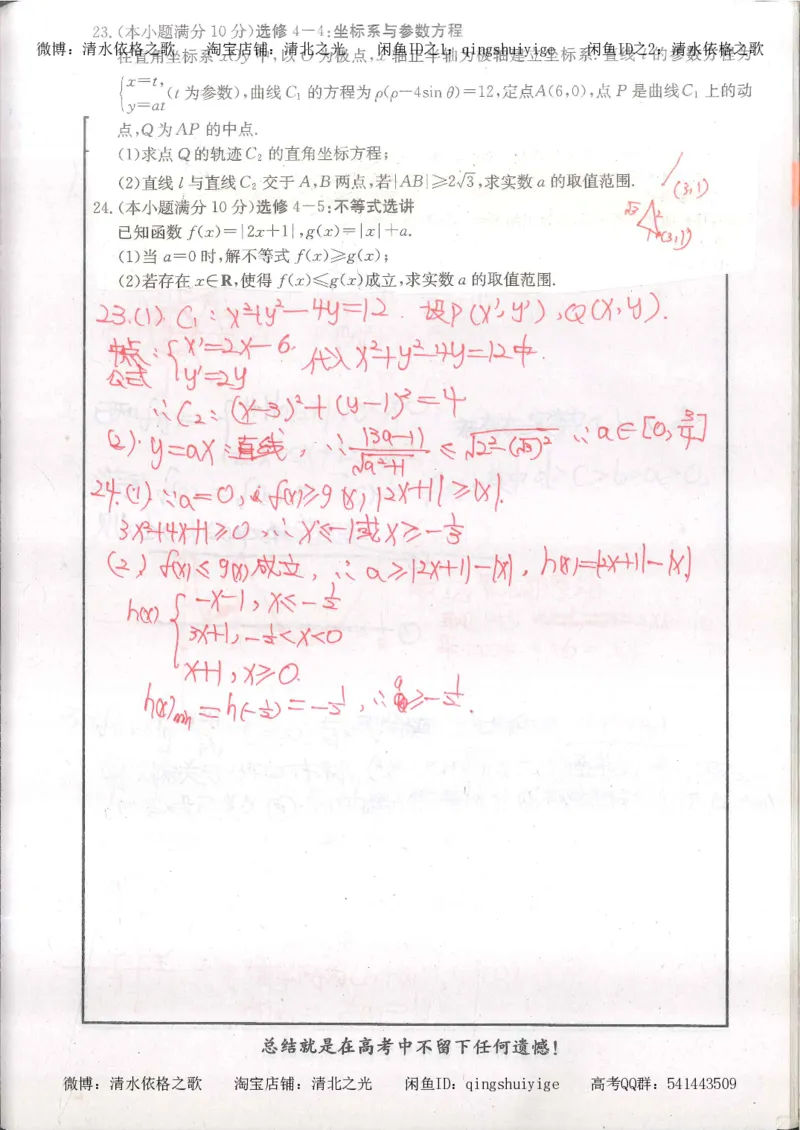 23.(本小题满分10分)选修4-4:坐标系与参数方程
微博：清水依格之歌 淘宝店铺：清北之光 闲鱼ID之1：qingshuiyige 闲鱼ID之2：清水依格之歌
在直角坐标系xOy中,以O为极点,x轴正半轴为极轴建立坐标系.直线l的参数方程为
{x=t,
y=at (t为参数),曲线C₁的方程为ρ(ρ-4sin θ)=12,定点A(6,0),点P是曲线C₁上的动
点,Q为AP的中点.
(1)求点Q的轨迹C₂的直角坐标方程;
(2)直线l与直线C₂交于A,B两点,若|AB|≥2√3,求实数a的取值范围.
(3,1)
√3 2
(3,1)
24.(本小题满分10分)选修4-5:不等式选讲
已知函数f(x)=|2x+1|,g(x)=|x|+a.
(1)当a=0时,解不等式f(x)≥g(x);
(2)若存在x∈R,使得f(x)≤g(x)成立,求实数a的取值范围.
23.(1) C₁: x²+y²-4y=12. 设P(x',y'),Q(x,y).
中点公式:{x'=2x-6.
y'=2y 代入x²+y²-4y=12中.
∴C₂:(x-3)²+(y-1)²=4
(2). y=ax:直线, ∴|3a-1|/√a²+1 ≤ √2²-(√3)² ∴a∈[0,3/4]
24.(1) ∵a=0, f(x)≥g(x), |2x+1|≥|x|.
3x²+4x+1≥0, ∴x≤-1或x≥-1/3
(2) f(x)≤g(x)成立, ∴a≥|2x+1|-|x|, h(x)=|2x+1|-|x|
h(x) {-x-1, x≤-1/2
3x+1, -1/2<x<0
x+1, x≥0.
h(x)min=h(-1/2)=-1/2, ∴a≥-1/2.
总结就是在高考中不留下任何遗憾!
微博：清水依格之歌 淘宝店铺：清北之光 闲鱼ID：qingshuiyige 高考QQ群：541443509